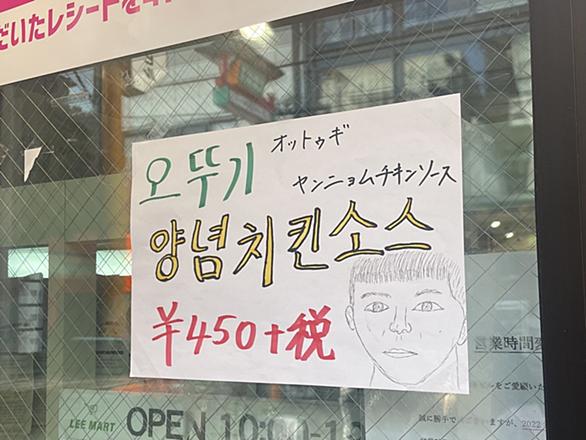 だいたレシートを
오뚜기
オットゥギ
ヤンニョムチキンソース
양념치킨소스
¥450+税
営業時間変
をご愛顧いた
誠に勝手で
ますが、2022
LEE MART
OPEN 10:00-1